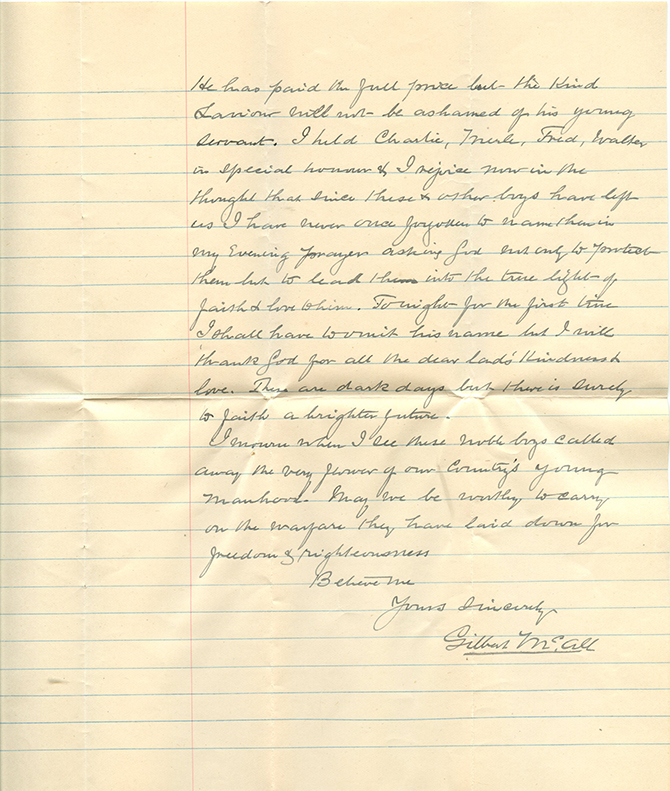 He has paid the full price but the Kind
Saviour will not be ashamed of his young
servant. I held Charlie, Merle, Fred, Walter
in special honour & I rejoice now in the
thought that since these & other boys have left
us I have never once forgotten to name them in
my Evening Prayer asking God not only to protect
them but to lead them into the true light of
faith & love to him. Tonight for the first time
I shall have to omit his name but I will
thank God for all the dear lad's Kindness &
love. These are dark days but there is surely
to faith a brighter future.
I mourn when I see these noble boys called
away the very flower of our Country's young
manhood. May we be worthy to carry
on the warfare they have laid down for
freedom & righteousness
Believe me
Yours Sincerely
Gilbert McAll